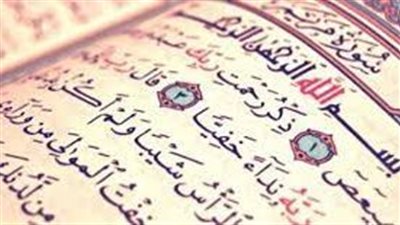 سُورَةُ مَرْيَمَ
بِسْمِ اللَّهِ الرَّحْمَٰنِ الرَّحِيمِ
ـيعص ١ ذِكْرُ رَحْمَتِ رَبِّكَ عَبْدَهُ
رَبَّهُ نِدَآءً خَفِيًّا ٣ قَالَ رَبِّ
الرَّأْسُ شَيْبًا وَلَمْ أَكُنْ
خِفْتُ الْمَوَٰلِيَ مِن وَرَآءِى
مِن لَّدُنكَ